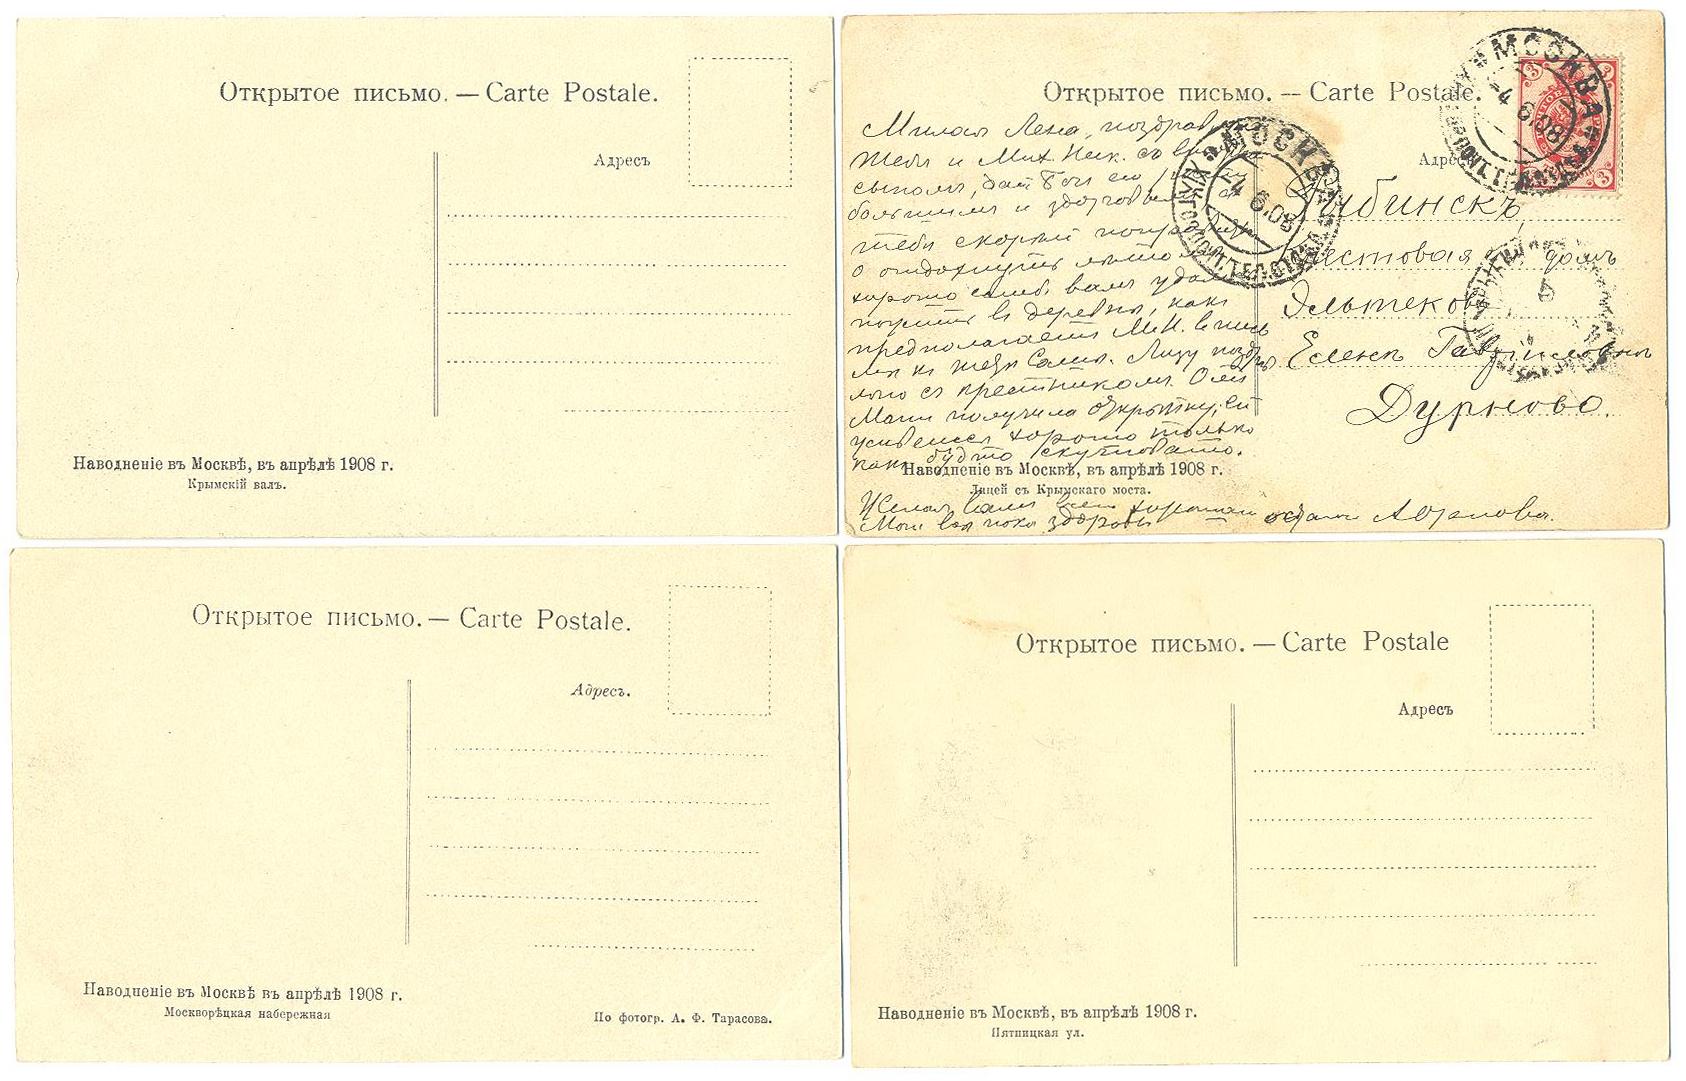 Открытое письмо. — Carte Postale.
Адресъ
Наводненіе въ Москвѣ, въ апрѣлѣ 1908 г.
Крымскій валъ.
Открытое письмо. — Carte Postale.
Адресъ
МОСКВА
4 6.08
3
Милая Лена, поздравл
тебя и Мих. Ник. съ
сыномъ, дай Богъ ему
большимъ и здоровымъ, а
тебѣ скорѣй поправит
о отдохнуть лѣтомъ
хорошо если вамъ удаст
пожить въ деревнѣ, какъ
предполагаетъ М.Н.
съ крестникомъ. Отъ
Мани получила открытку, ей
живется хорошо только
какъ будто скучновато.
Желаю вамъ всего хорошаго
Мои всѣ пока здоровы
Рыбинскъ,
Крестовая домъ
Эльтекова
Еленѣ Гавріиловнѣ
Дурново.
Наводненіе въ Москвѣ, въ апрѣлѣ 1908 г.
Лицей съ Крымскаго моста.
Открытое письмо. — Carte Postale.
Адресъ.
Наводненіе въ Москвѣ въ апрѣлѣ 1908 г.
Москворѣцкая набережная
По фотогр. А. Ф. Тарасова.
Открытое письмо. — Carte Postale
Адресъ
Наводненіе въ Москвѣ, въ апрѣлѣ 1908 г.
Пятницкая ул.